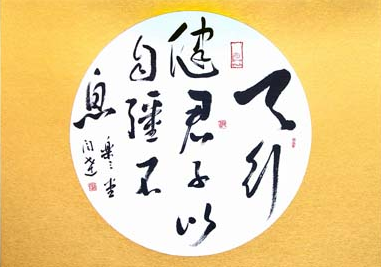 天行
健君子以
自疆不
息